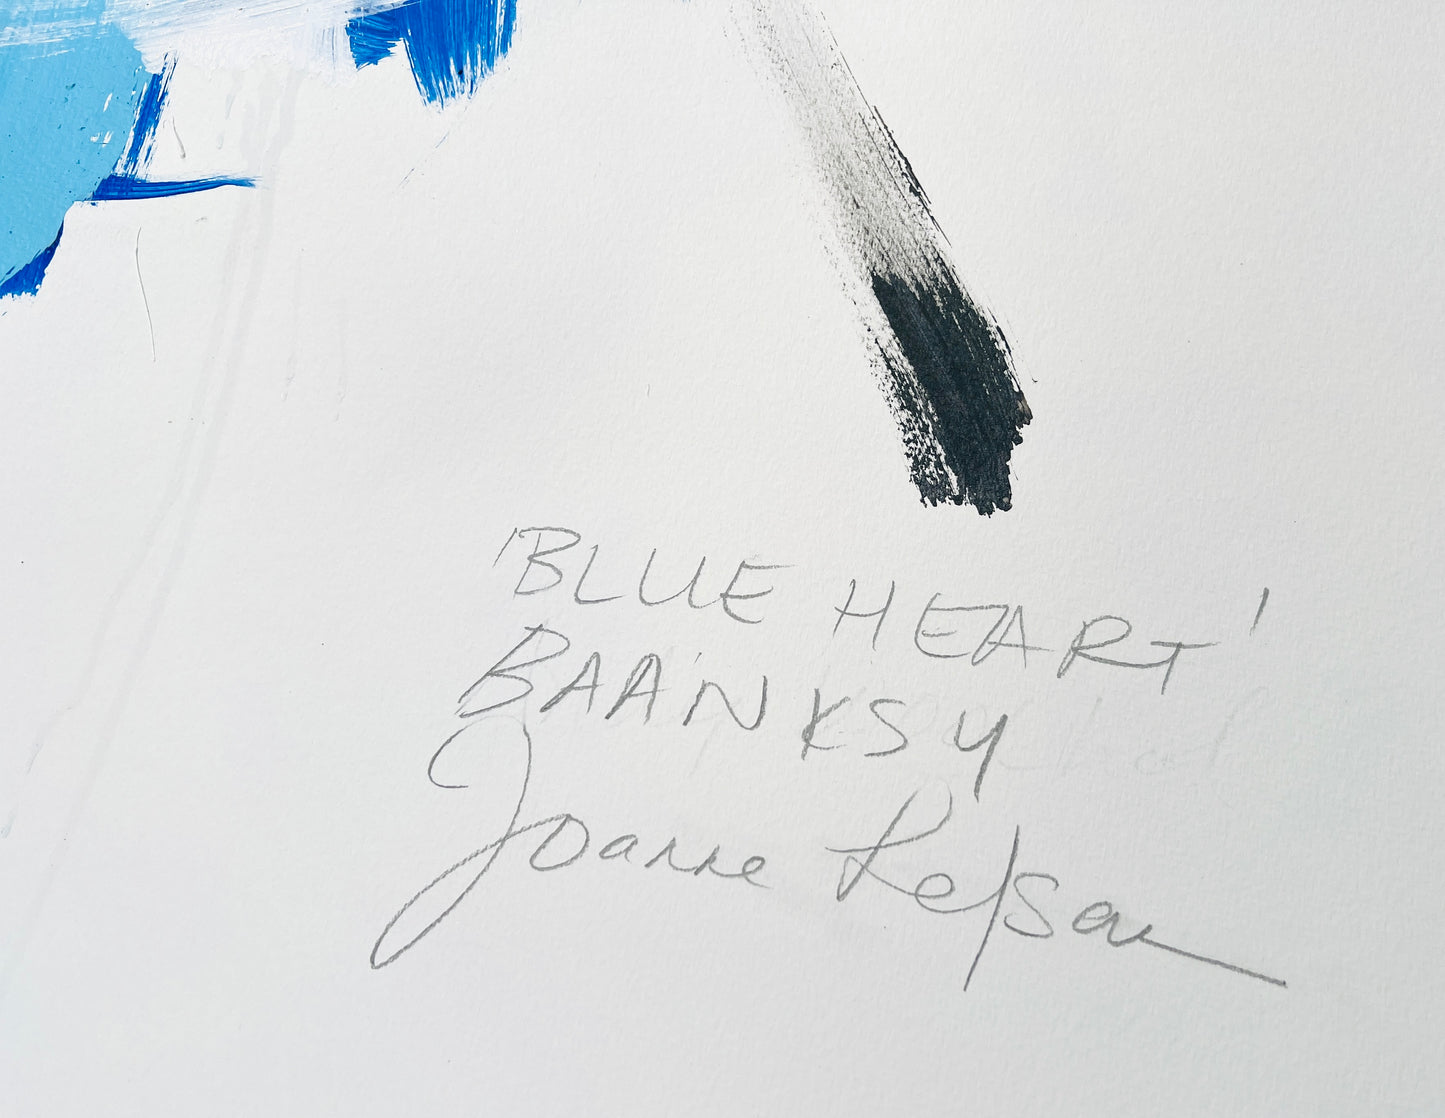 'BLUE HEART'
BAANKSY
Joanne